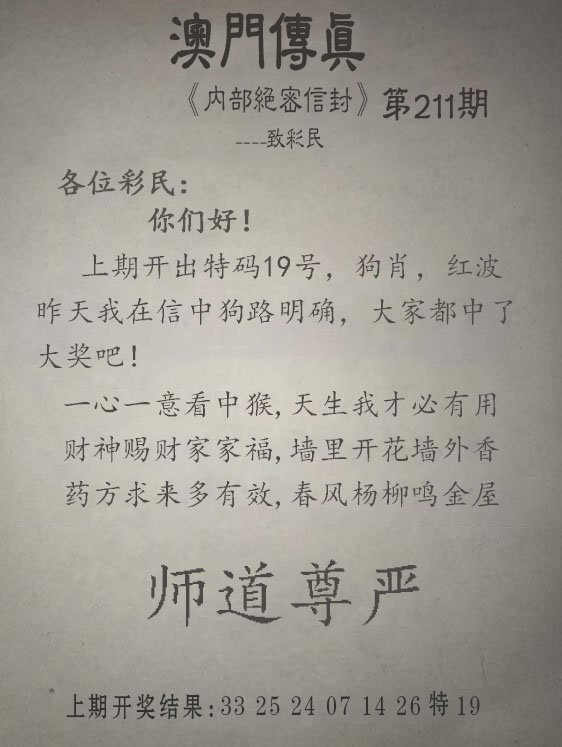 澳門傳眞
《内部絕密信封》第211期
----致彩民
各位彩民:
你们好!
上期开出特码19号，狗肖，红波
昨天我在信中狗路明确，大家都中了
大奖吧!
一心一意看中猴,天生我才必有用
财神赐财家家福,墙里开花墙外香
药方求来多有效,春风杨柳鸣金屋
师道尊严
上期开奖结果:33 25 24 07 14 26 特 19